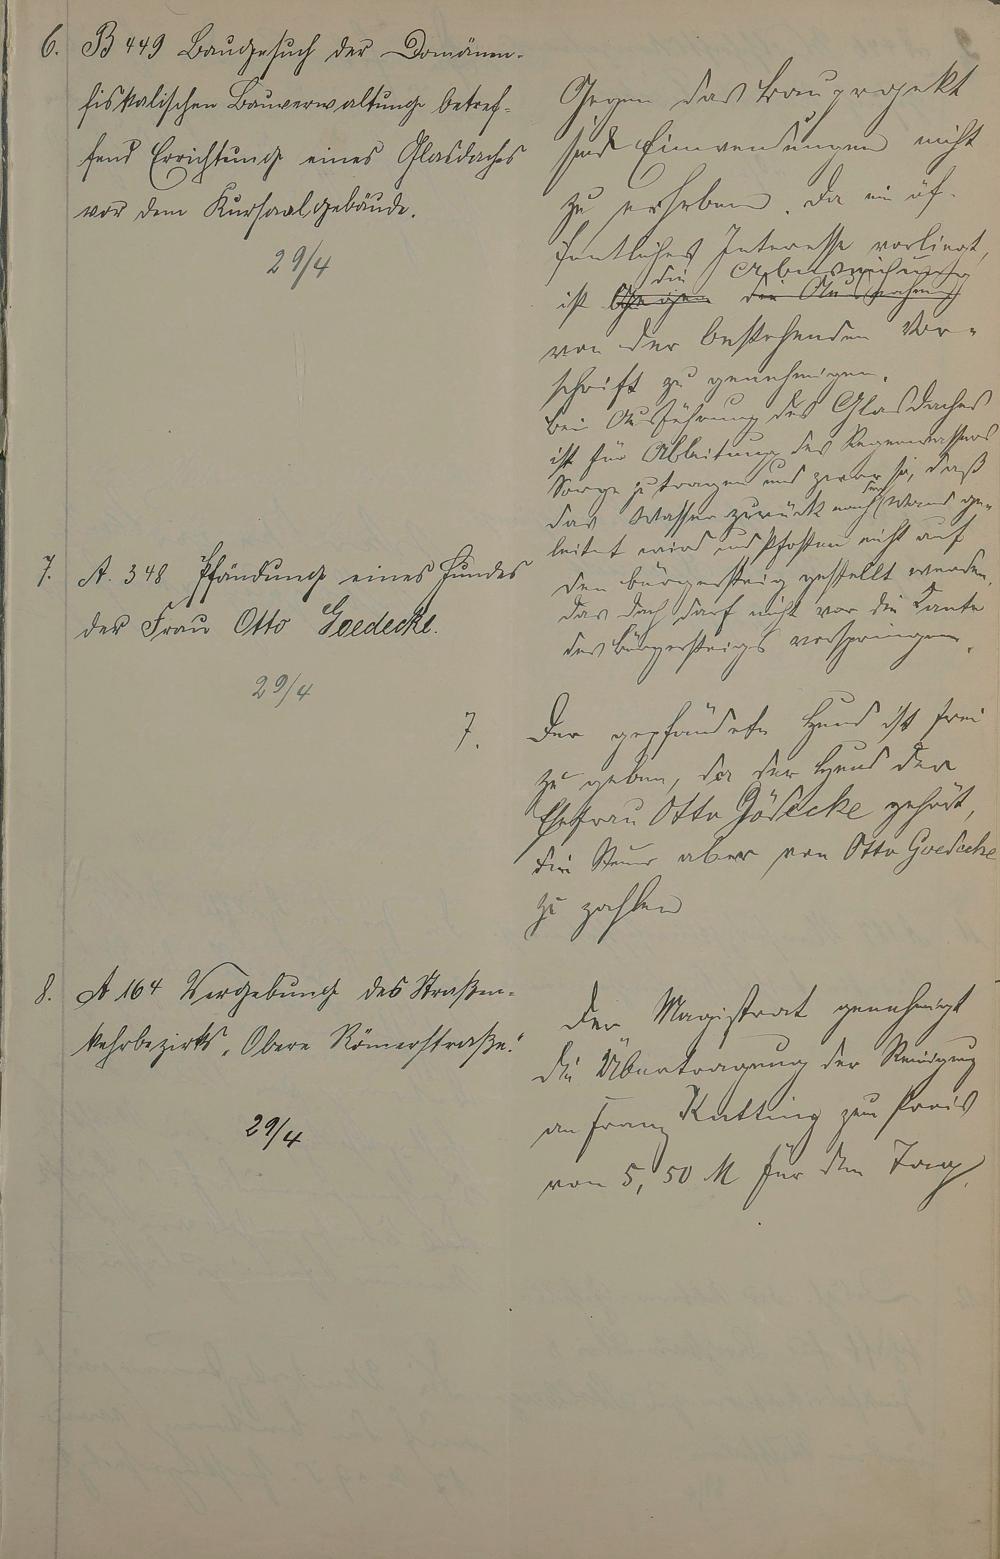 6. B 449 Baugesuch der Domänen-
fiskalischen Bauverwaltung betref-
fend Errichtung eines Glasdaches
vor dem Kursaalgebäude.
29/4
Gegen das Bauprojekt
sind Einwendungen nicht
zu erheben. Da ein öf-
fentliches Interesse vorliegt,
die Abweichung
ist gegen die Ausnahme
von der bestehenden Vor-
schrift zu genehmigen.
Bei Ausführung des Glasdaches
ist für Ableitung des Regenwassers
Sorge zu tragen und zwar so, daß
das Wasser zurück nach der Wand ge-
leitet wird und Pfosten nicht auf
den Bürgersteig gestellt werden.
Das Dach darf nicht vor die Kante
des Bürgersteigs vorspringen.
7. A. 348 Pfändung eines Hundes
der Frau Otto Goedecke.
29/4
7. Der gepfändete Hund ist frei
zu geben, da der Hund der
Ehefrau Otto Gödecke gehört,
die Steuer aber von Otto Goedecke
zu zahlen
8. A 164 Vergebung des Straßen-
kehrbezirks „Obere Römerstraße."
29/4
Der Magistrat genehmigt
die Übertragung der Reinigung
an Franz Kutting zum Preis
von 5,50 M für den Tag.